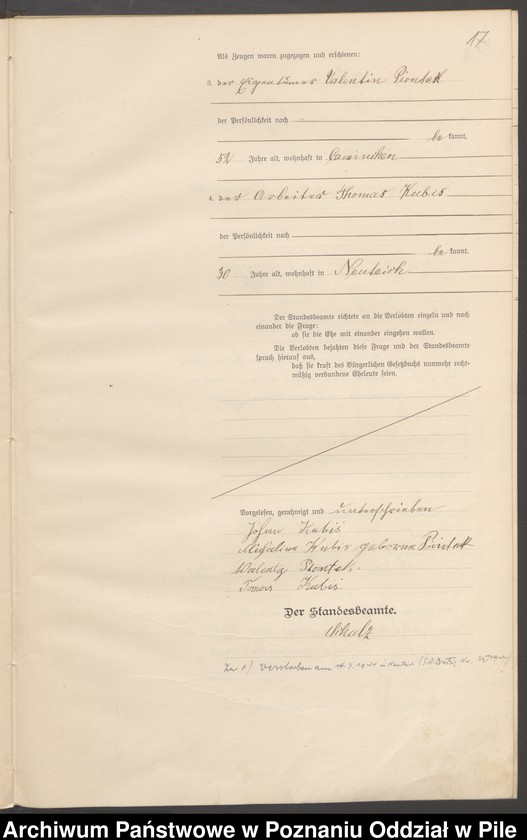 17
Als Zeugen waren zugezogen und erschienen:
3. der Eigentümer Valentin Piontek
der Persönlichkeit nach
be kannt,
52 Jahre alt, wohnhaft in Caminchen
4. der Arbeiter Thomas Kubis
der Persönlichkeit nach
be kannt,
30 Jahre alt, wohnhaft in Neuteich
Der Standesbeamte richtete an die Verlobten einzeln und nach
einander die Frage:
ob sie die Ehe mit einander eingehen wollen.
Die Verlobten bejahten diese Frage und der Standesbeamte
sprach hierauf aus,
daß sie kraft des Bürgerlichen Gesetzbuchs nunmehr recht-
mäßig verbundene Eheleute seien.
Vorgelesen, genehmigt und unterschrieben
Johan Kubis
Michalina Kubis geborene Piontek
Walenty Piontek.
Tomas Kubis.
Der Standesbeamte.
Schulz
Zu 1) verstorben am
Archiwum Państwowe w Poznaniu Oddział w Pile